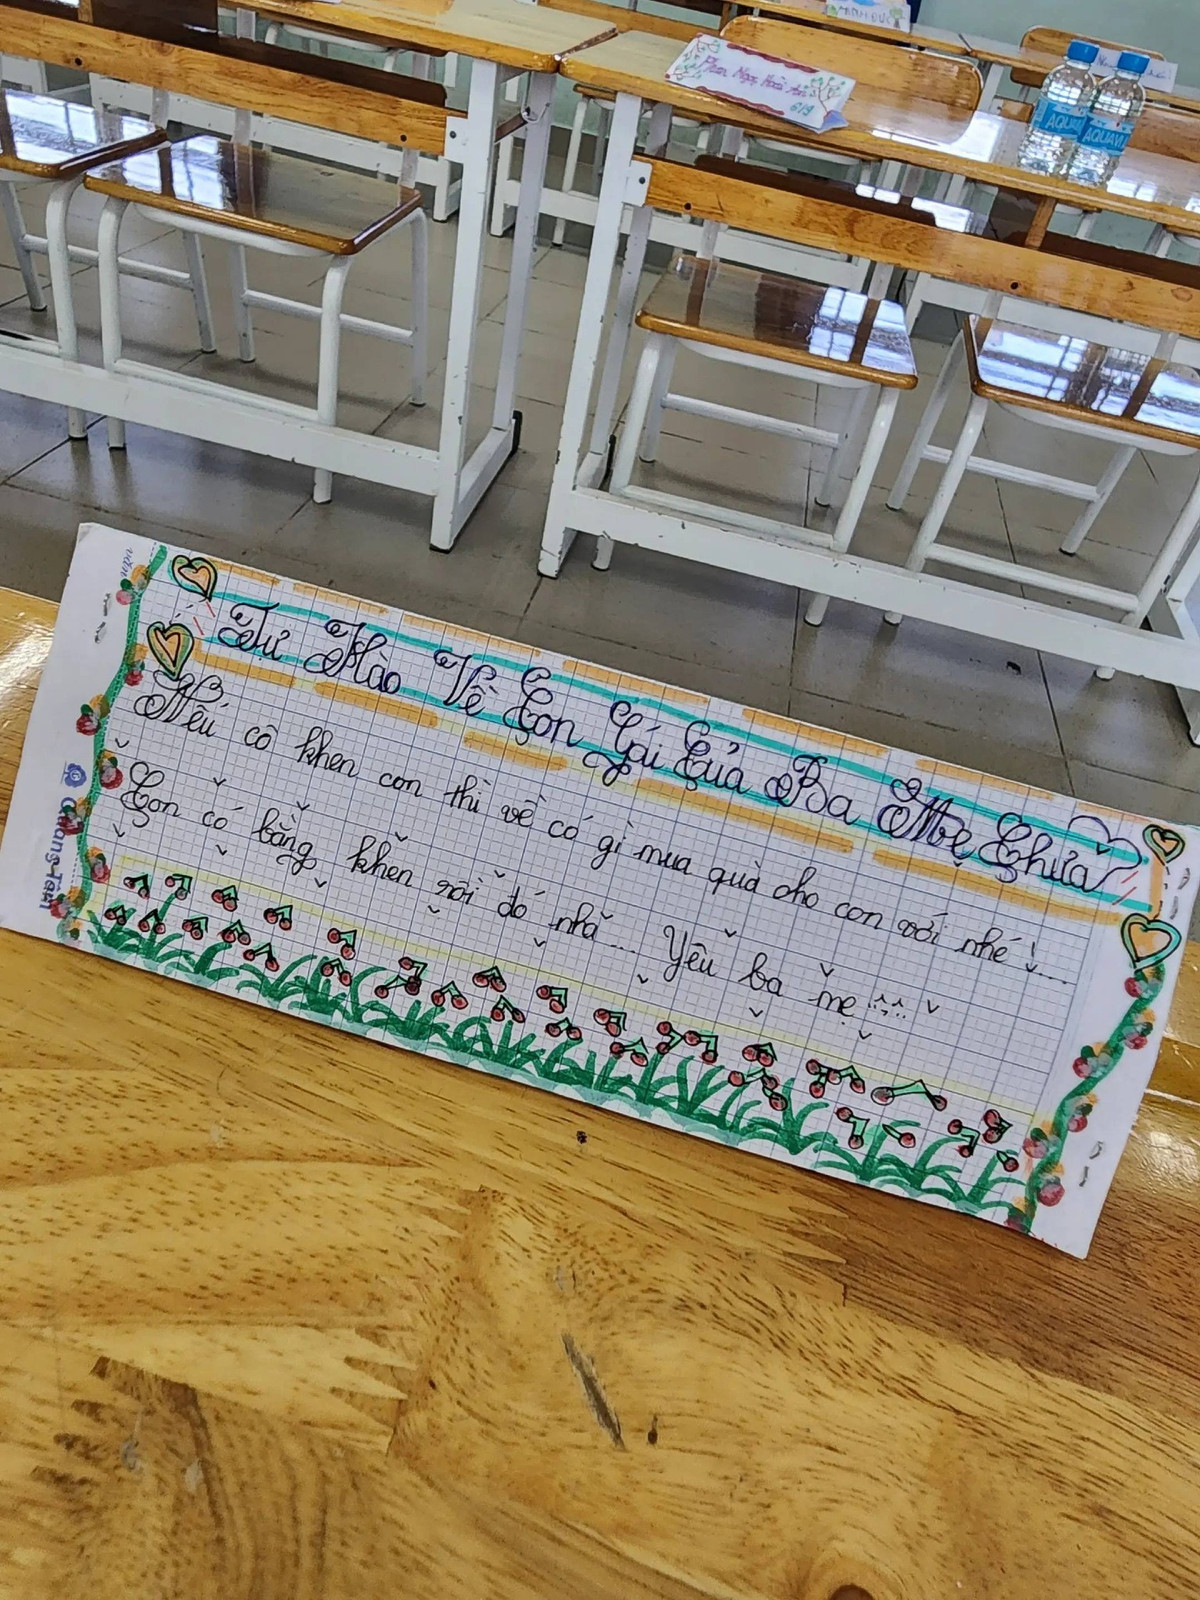 Phan Ngọc Hoài An
6/9
AQUAVI
AQUAVI
Tự Hào Về Con Gái Của Ba Mẹ Chưa
Nếu cô khen con thì về có gì mua quà cho con với nhé !...
Con có bằng khen rồi đó nhá... Yêu ba mẹ